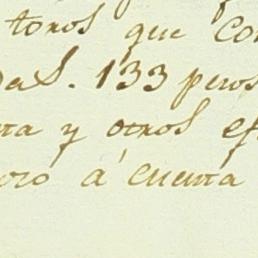 toros que con
das. 133 pesos
ta y otros ef
oró á cuenta